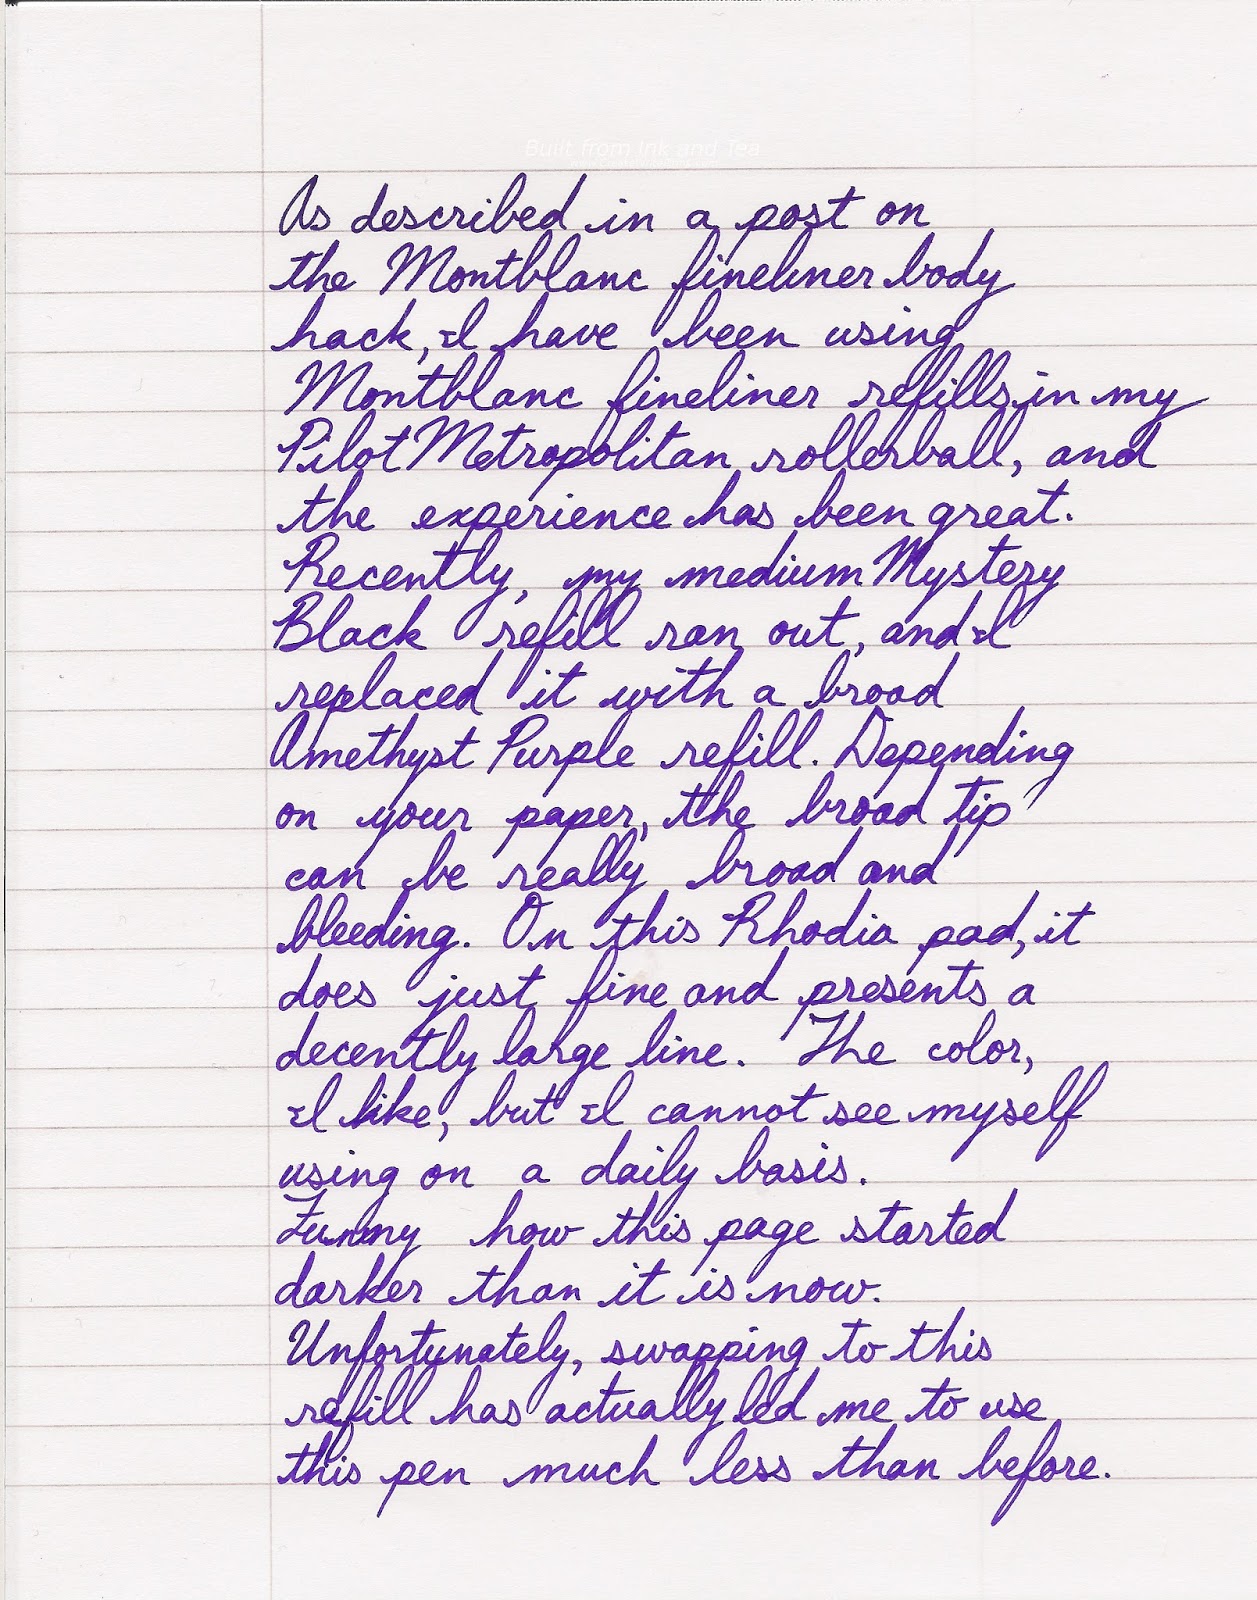 Built from Ink and Tea
As described in a post on
the Montblanc fineliner body
hack, I have been using
Montblanc fineliner refills in my
Pilot Metropolitan rollerball, and
the experience has been great.
Recently, my medium Mystery
Black refill ran out, and I
replaced it with a broad
Amethyst Purple refill. Depending
on your paper, the broad tip
can be really broad and
bleeding. On this Rhodia pad, it
does just fine and presents a
decently large line. The color,
I like, but I cannot see myself
using on a daily basis.
Funny how this page started
darker than it is now.
Unfortunately, swapping to this
refill has actually led me to use
this pen much less than before.